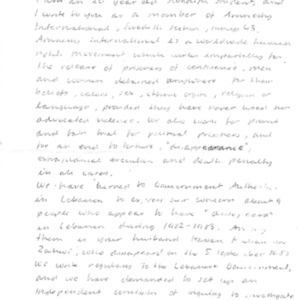 I am an 20 year old Swedish student, and
I write to you as a member of Amnesty
International, Swedish section, group 63.
Amnesty International is a worldwide human
rights movement which works impartially for
the release of prisoners of conscience, men
and women detained anywhere for their
beliefs, colour, sex, ethnic origin, religion or
language, provided they have never used nor
advocated violence. We also work for prompt
and fair trial for political prisoners, and
for an end to torture, "disappearance",
extrajudicial execution and death penalty
in all cases.
We have turned to Government Authorities
in Lebanon to express our concern about
people who appear to have "disappeared"
in Lebanon during 1982-1988. Among
them is your husband
who disappeared on the 5 september
We write regularly to the Lebanese Government,
and we have demanded to set up an
independent comission of inquiry to investigate